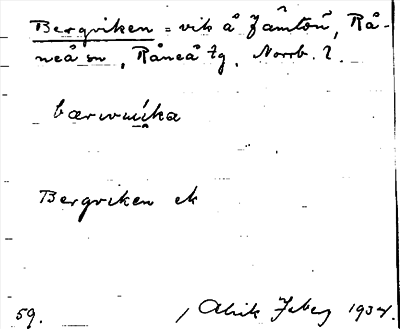 Bergviken = vik å Jämtön, Rå-
neå sn, Råneå tg, Norrb. l.
bærwwika
Bergviken ek
59. Alrik 1934.